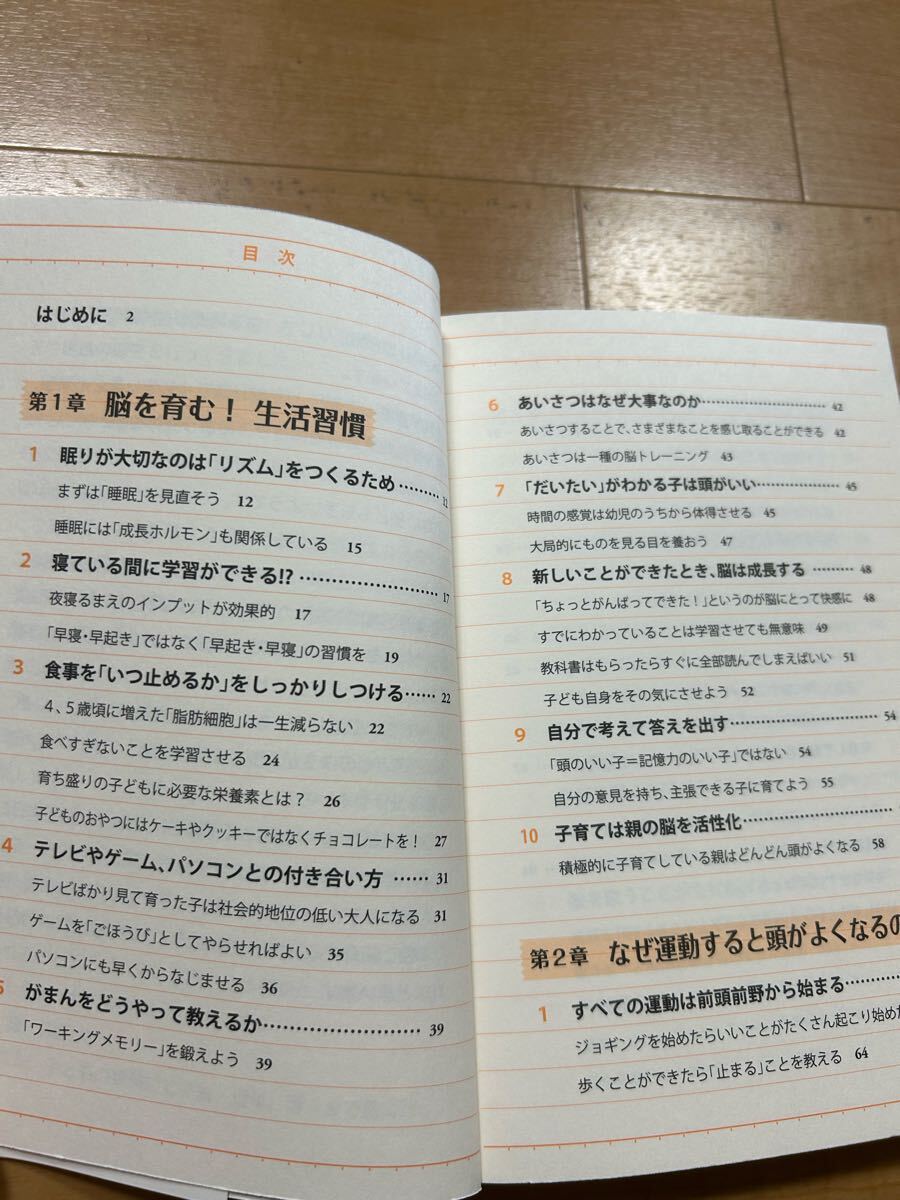 目 次
はじめに 2
第1章 脳を育む！ 生活習慣
1 眠りが大切なのは「リズム」をつくるため……… 11
まずは「睡眠」を見直そう 12
睡眠には「成長ホルモン」も関係している 15
2 寝ている間に学習ができる!?…………………… 17
夜寝るまえのインプットが効果的 17
「早寝・早起き」ではなく「早起き・早寝」の習慣を 19
3 食事を「いつ止めるか」をしっかりしつける…… 22
4、5歳頃に増えた「脂肪細胞」は一生減らない 22
食べすぎないことを学習させる 24
育ち盛りの子どもに必要な栄養素とは？ 26
子どものおやつにはケーキやクッキーではなくチョコレートを！ 27
4 テレビやゲーム、パソコンとの付き合い方 …… 31
テレビばかり見て育った子は社会的地位の低い大人になる 31
ゲームを「ごほうび」としてやらせればよい 35
パソコンにも早くからなじませる 36
5 がまんをどうやって教えるか……………………… 39
「ワーキングメモリー」を鍛えよう 39
6 あいさつはなぜ大事なのか……………………… 42
あいさつすることで、さまざまなことを感じ取ることができる 42
あいさつは一種の脳トレーニング 43
7 「だいたい」がわかる子は頭がいい……………… 45
時間の感覚は幼児のうちから体得させる 45
大局的にものを見る目を養おう 47
8 新しいことができたとき、脳は成長する ……… 48
「ちょっとがんばってできた！」というのが脳にとって快感に 48
すでにわかっていることは学習させても無意味 49
教科書はもらったらすぐに全部読んでしまえばいい 51
子ども自身をその気にさせよう 52
9 自分で考えて答えを出す………………………… 54
「頭のいい子＝記憶力のいい子」ではない 54
自分の意見を持ち、主張できる子に育てよう 55
10 子育ては親の脳を活性化…………………………
積極的に子育てしている親はどんどん頭がよくなる 58
第2章 なぜ運動すると頭がよくなるの
1 すべての運動は前頭前野から始まる………
ジョギングを始めたらいいことがたくさん起こり始めた
歩くことができたら「止まる」ことを教える 64